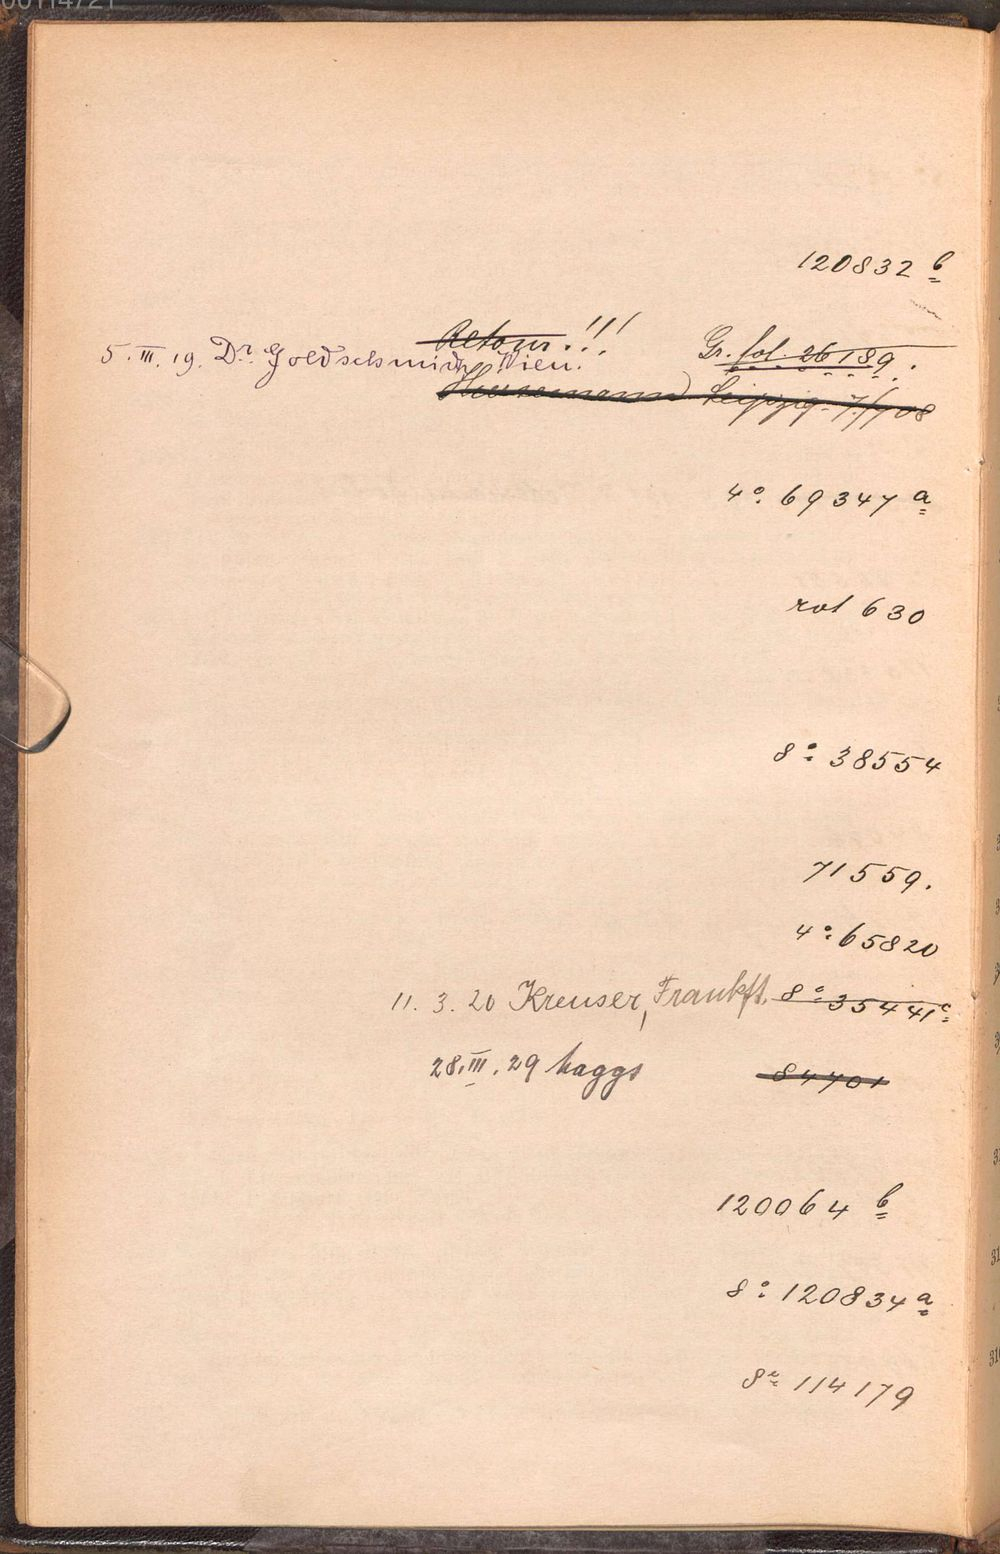 00114721
120832 b
Retour!!!
5. III. 19. Dr. Goldschmidt, Wien. Gr. fol. 26189.
Leipzig. 7./V 08
4°. 69347 a
rot 630
8°. 38554
71559.
4°. 65820
11. 3. 20 Kreuser, Frankft. 8°. 35441c
28. III. 29 Haggs 84701
120064 b
8°. 120834 a
8°. 114179